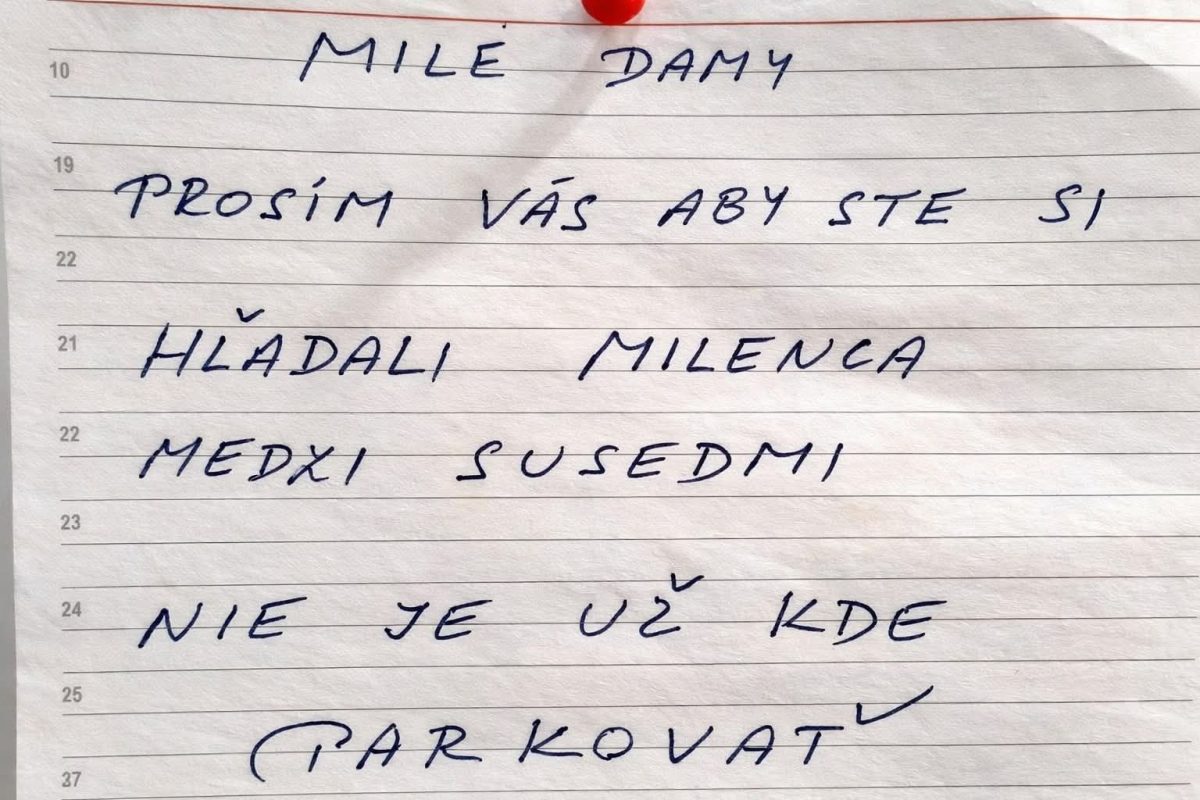 MILÉ DAMY
10
19
PROSÍM VÁS ABY STE SI
22
21
HĽADALI MILENCA
22
MEDZI SUSEDMI
23
24
NIE JE UŽ KDE
25
PARKOVAŤ
37